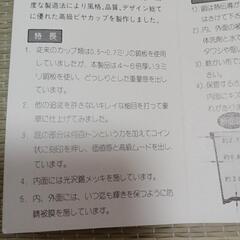 度な製造法により風格、品質、デザイン総て
に優れた高級ビヤカップを製作しました。
特 長
1. 従来のカップ類は0.5~0.7ミリの銅板を使
用していましたが、本製品は4~6倍厚、3ミ
リ銅板を使い、どっしりとした重量感を出し
ています。
2. 他の追従を許さないキレイな槌目を打って豪
華に仕上げてみました。
3. 底の部分は何百トンという力を加えてコイン
状に刻印を押し、価値感と高級ムードを出し
ています。
4. 内面には光沢錫メッキを施しています。
5. 内、外面には、いつ迄も輝きを保つように防
錆被膜を施しています。
1) 銅は熱伝導が
2) 外面のお
体洗剤と水で
タワシや磨
使い始め